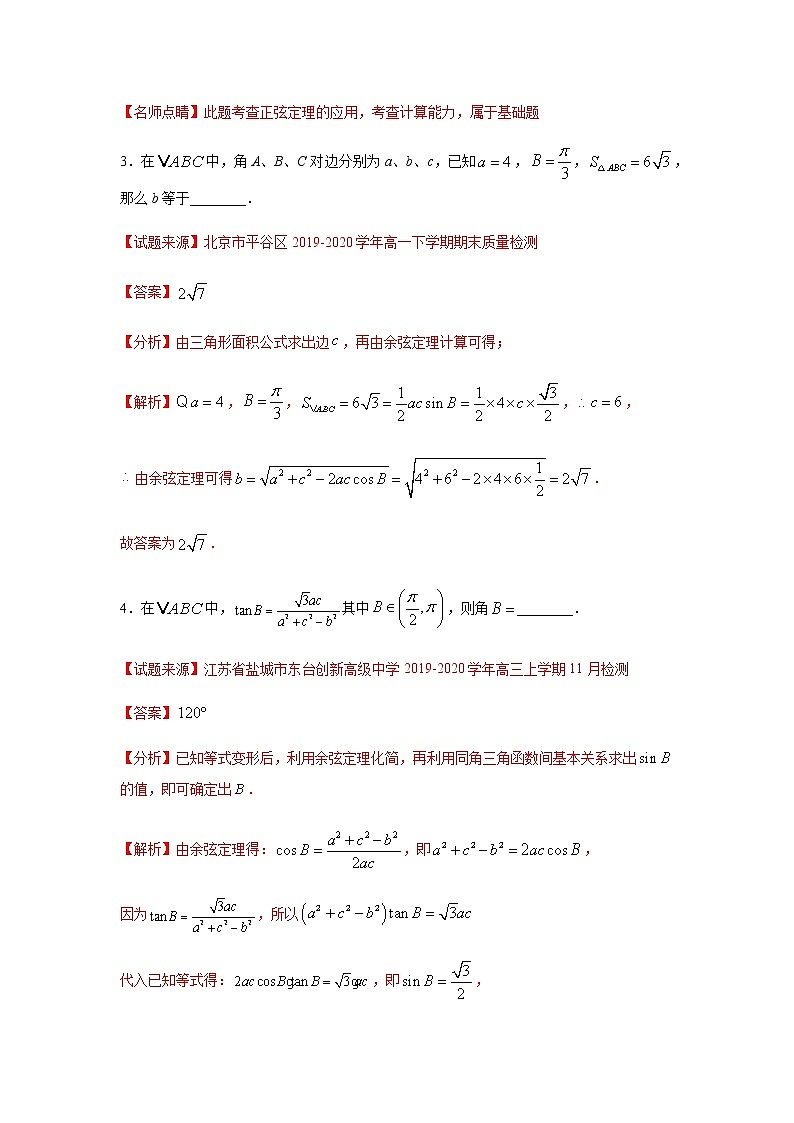 【名师点睛】此题考查正弦定理的应用，考查计算能力，属于基础题
3．在VABC中，角 A、B、C 对边分别为 a、b、c，已知a = 4， B = π/3， S△ABC = 6√3，
那么 b 等于________．
【试题来源】北京市平谷区 2019-2020 学年高一下学期期末质量检测
【答案】2√7
【分析】由三角形面积公式求出边c，再由余弦定理计算可得；
【解析】Q a = 4， B = π/3， SVABC = 6√3 = 1/2 ac sin B = 1/2 × 4 × c × √3/2，∴ c = 6，
∴ 由余弦定理可得b = √(a² + c² − 2ac cos B) = √(4² + 6² − 2×4×6×1/2) = 2√7．
故答案为2√7．
4．在VABC中，tan B = √3ac/(a² + c² − b²)其中B ∈ (π/2, π)，则角B = ________．
【试题来源】江苏省盐城市东台创新高级中学 2019-2020 学年高三上学期 11 月检测
【答案】120°
【分析】已知等式变形后，利用余弦定理化简，再利用同角三角函数间基本关系求出sin B
的值，即可确定出B．
【解析】由余弦定理得：cos B = (a² + c² − b²)/2ac，即a² + c² − b² = 2ac cos B，
因为tan B = √3ac/(a² + c² − b²)，所以(a² + c² − b²)tan B = √3ac
代入已知等式得：2ac cos Bgtan B = √3gac，即sin B = √3/2，